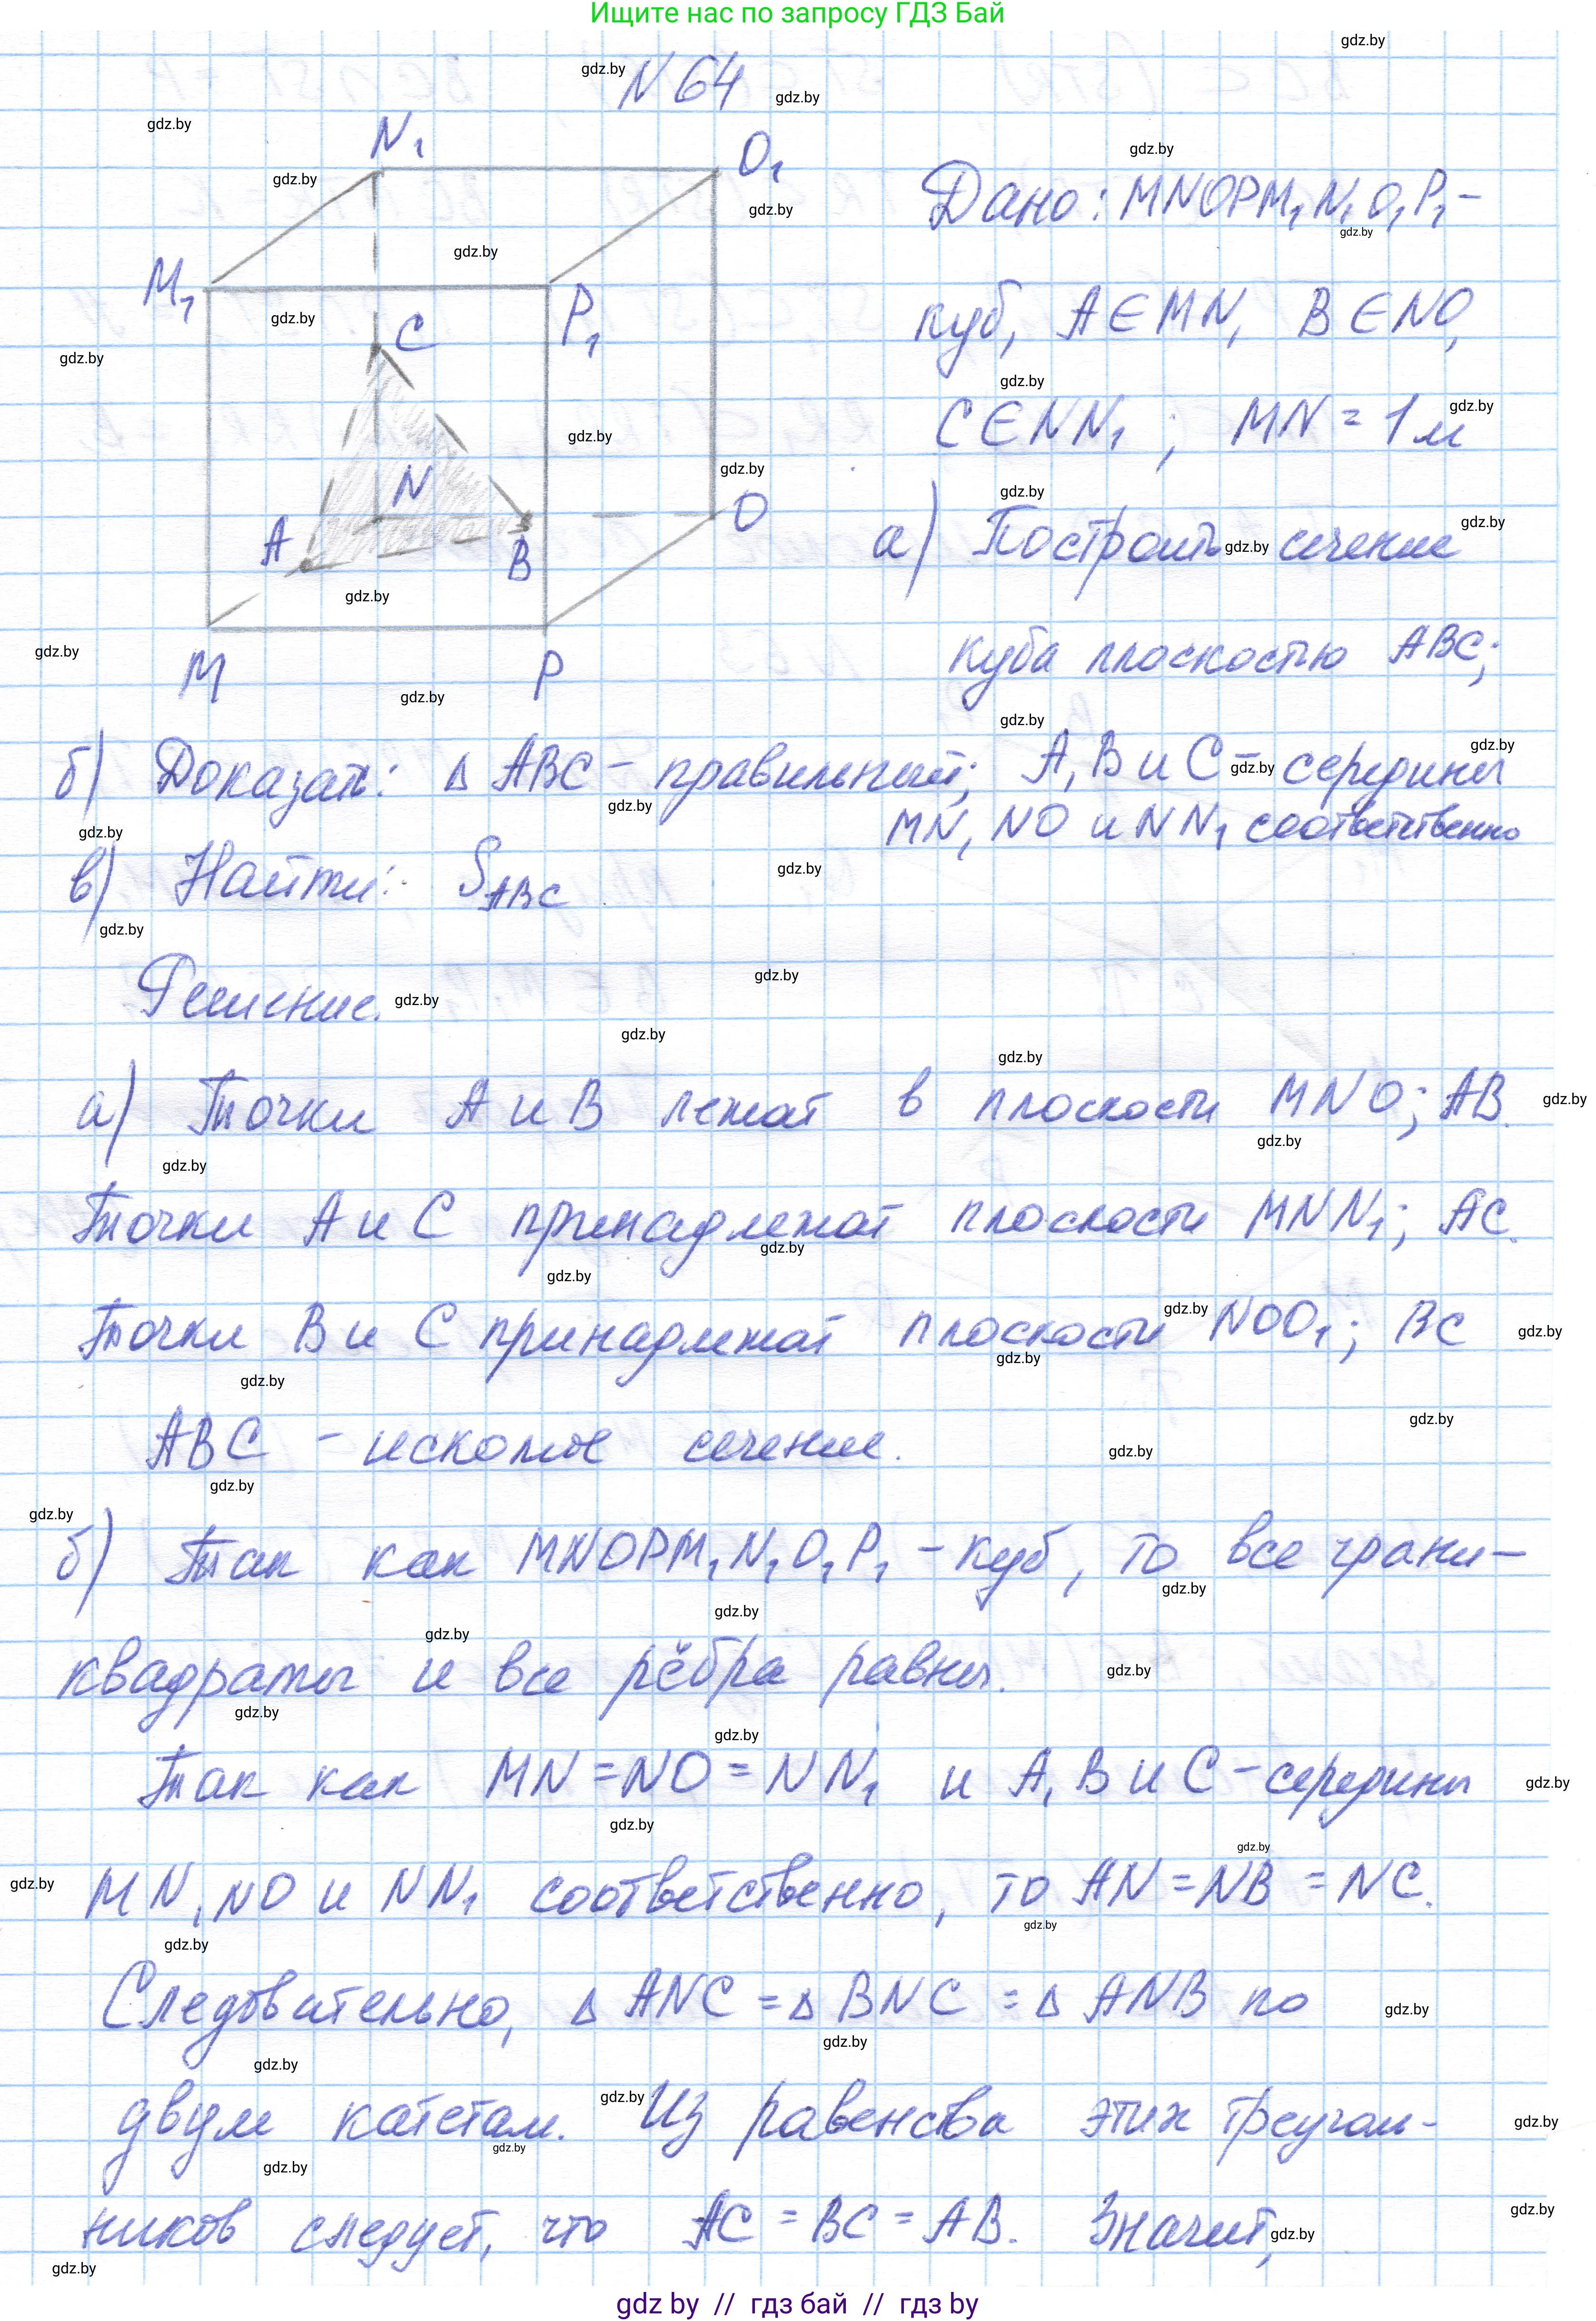 Ищите нас по запросу ГДЗ Бай
N 64
N₁
O₁
M₁
P₁
C
N
A
B
O
M
P
Дано: MNOPM₁N₁O₁P₁ -
куб, A ∈ MN, B ∈ NO,
C ∈ NN₁ ; MN = 1 м
а) Построить сечение
куба плоскостью ABC;
б) Доказать: Δ ABC - правильный; A, B и C - середины
MN, NO и NN₁ соответственно
в) Найти: S_ABC
Решение.
а) Точки A и B лежат в плоскости MNO; AB.
Точки A и C принадлежат плоскости MNN₁; AC.
Точки B и C принадлежат плоскости NOO₁; BC
ABC - искомое сечение.
б) Так как MNOPM₁N₁O₁P₁ - куб, то все грани -
квадраты и все рёбра равны.
Так как MN = NO = NN₁ и A, B и C - середины
MN, NO и NN₁ соответственно, то AN = NB = NC.
Следовательно, Δ ANC = Δ BNC = Δ ANB по
двум катетам. Из равенства этих треуголь-
ников следует, что AC = BC = AB. Значит,
gdz by // гдз бай // гдз by